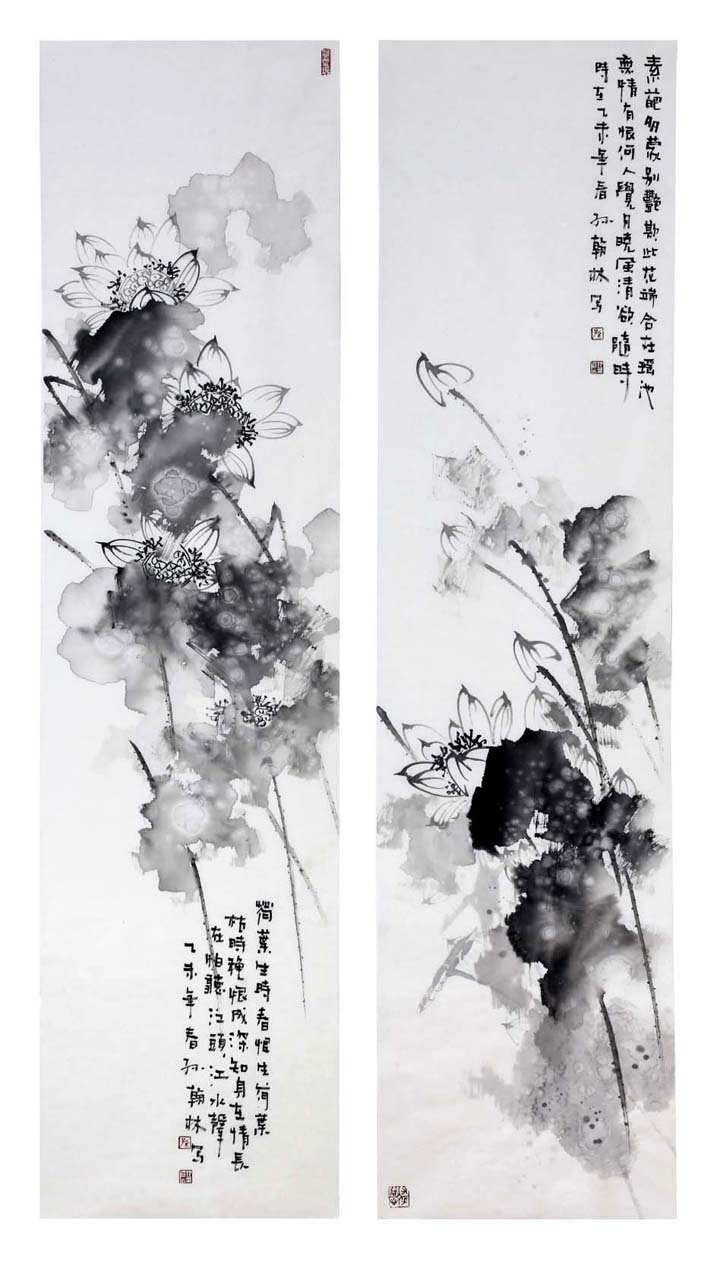 素葩多蒙别艷欺此花端合在瑶池
無情有恨何人覺月曉風清欲隨時
時在乙未年春孙翰林写
荷葉生時春恨生荷葉
枯時穐恨成深知身在情長
在怕聽江頭江水聲
乙未年春孙翰林写